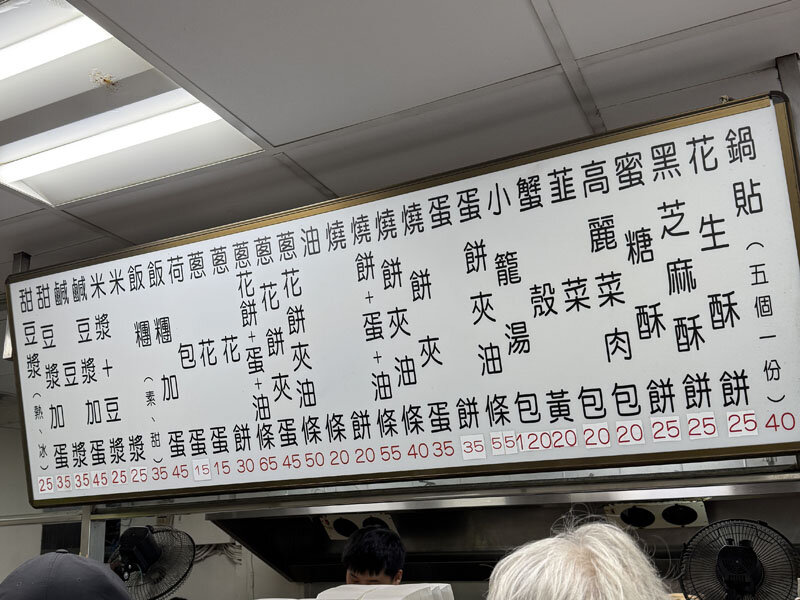 鍋貼（五個一份）40
花生酥餅25
黑芝麻酥餅25
蜜糖酥餅25
高麗菜肉包20
韮菜包20
蟹殼黃20
小籠湯包120
蛋餅夾油條55
蛋餅35
燒餅夾蛋35
燒餅夾油條40
燒餅+蛋+油條55
燒餅20
油條20
蔥花餅夾油條50
蔥花餅夾蛋45
蔥花餅+蛋+油條65
蔥花餅30
蔥花蛋15
荷包蛋15
飯糰加蛋45
飯糰（素、甜）35
米漿+豆漿25
米漿25
鹹豆漿加蛋45
鹹豆漿35
甜豆漿加蛋35
甜豆漿（熱、冰）25